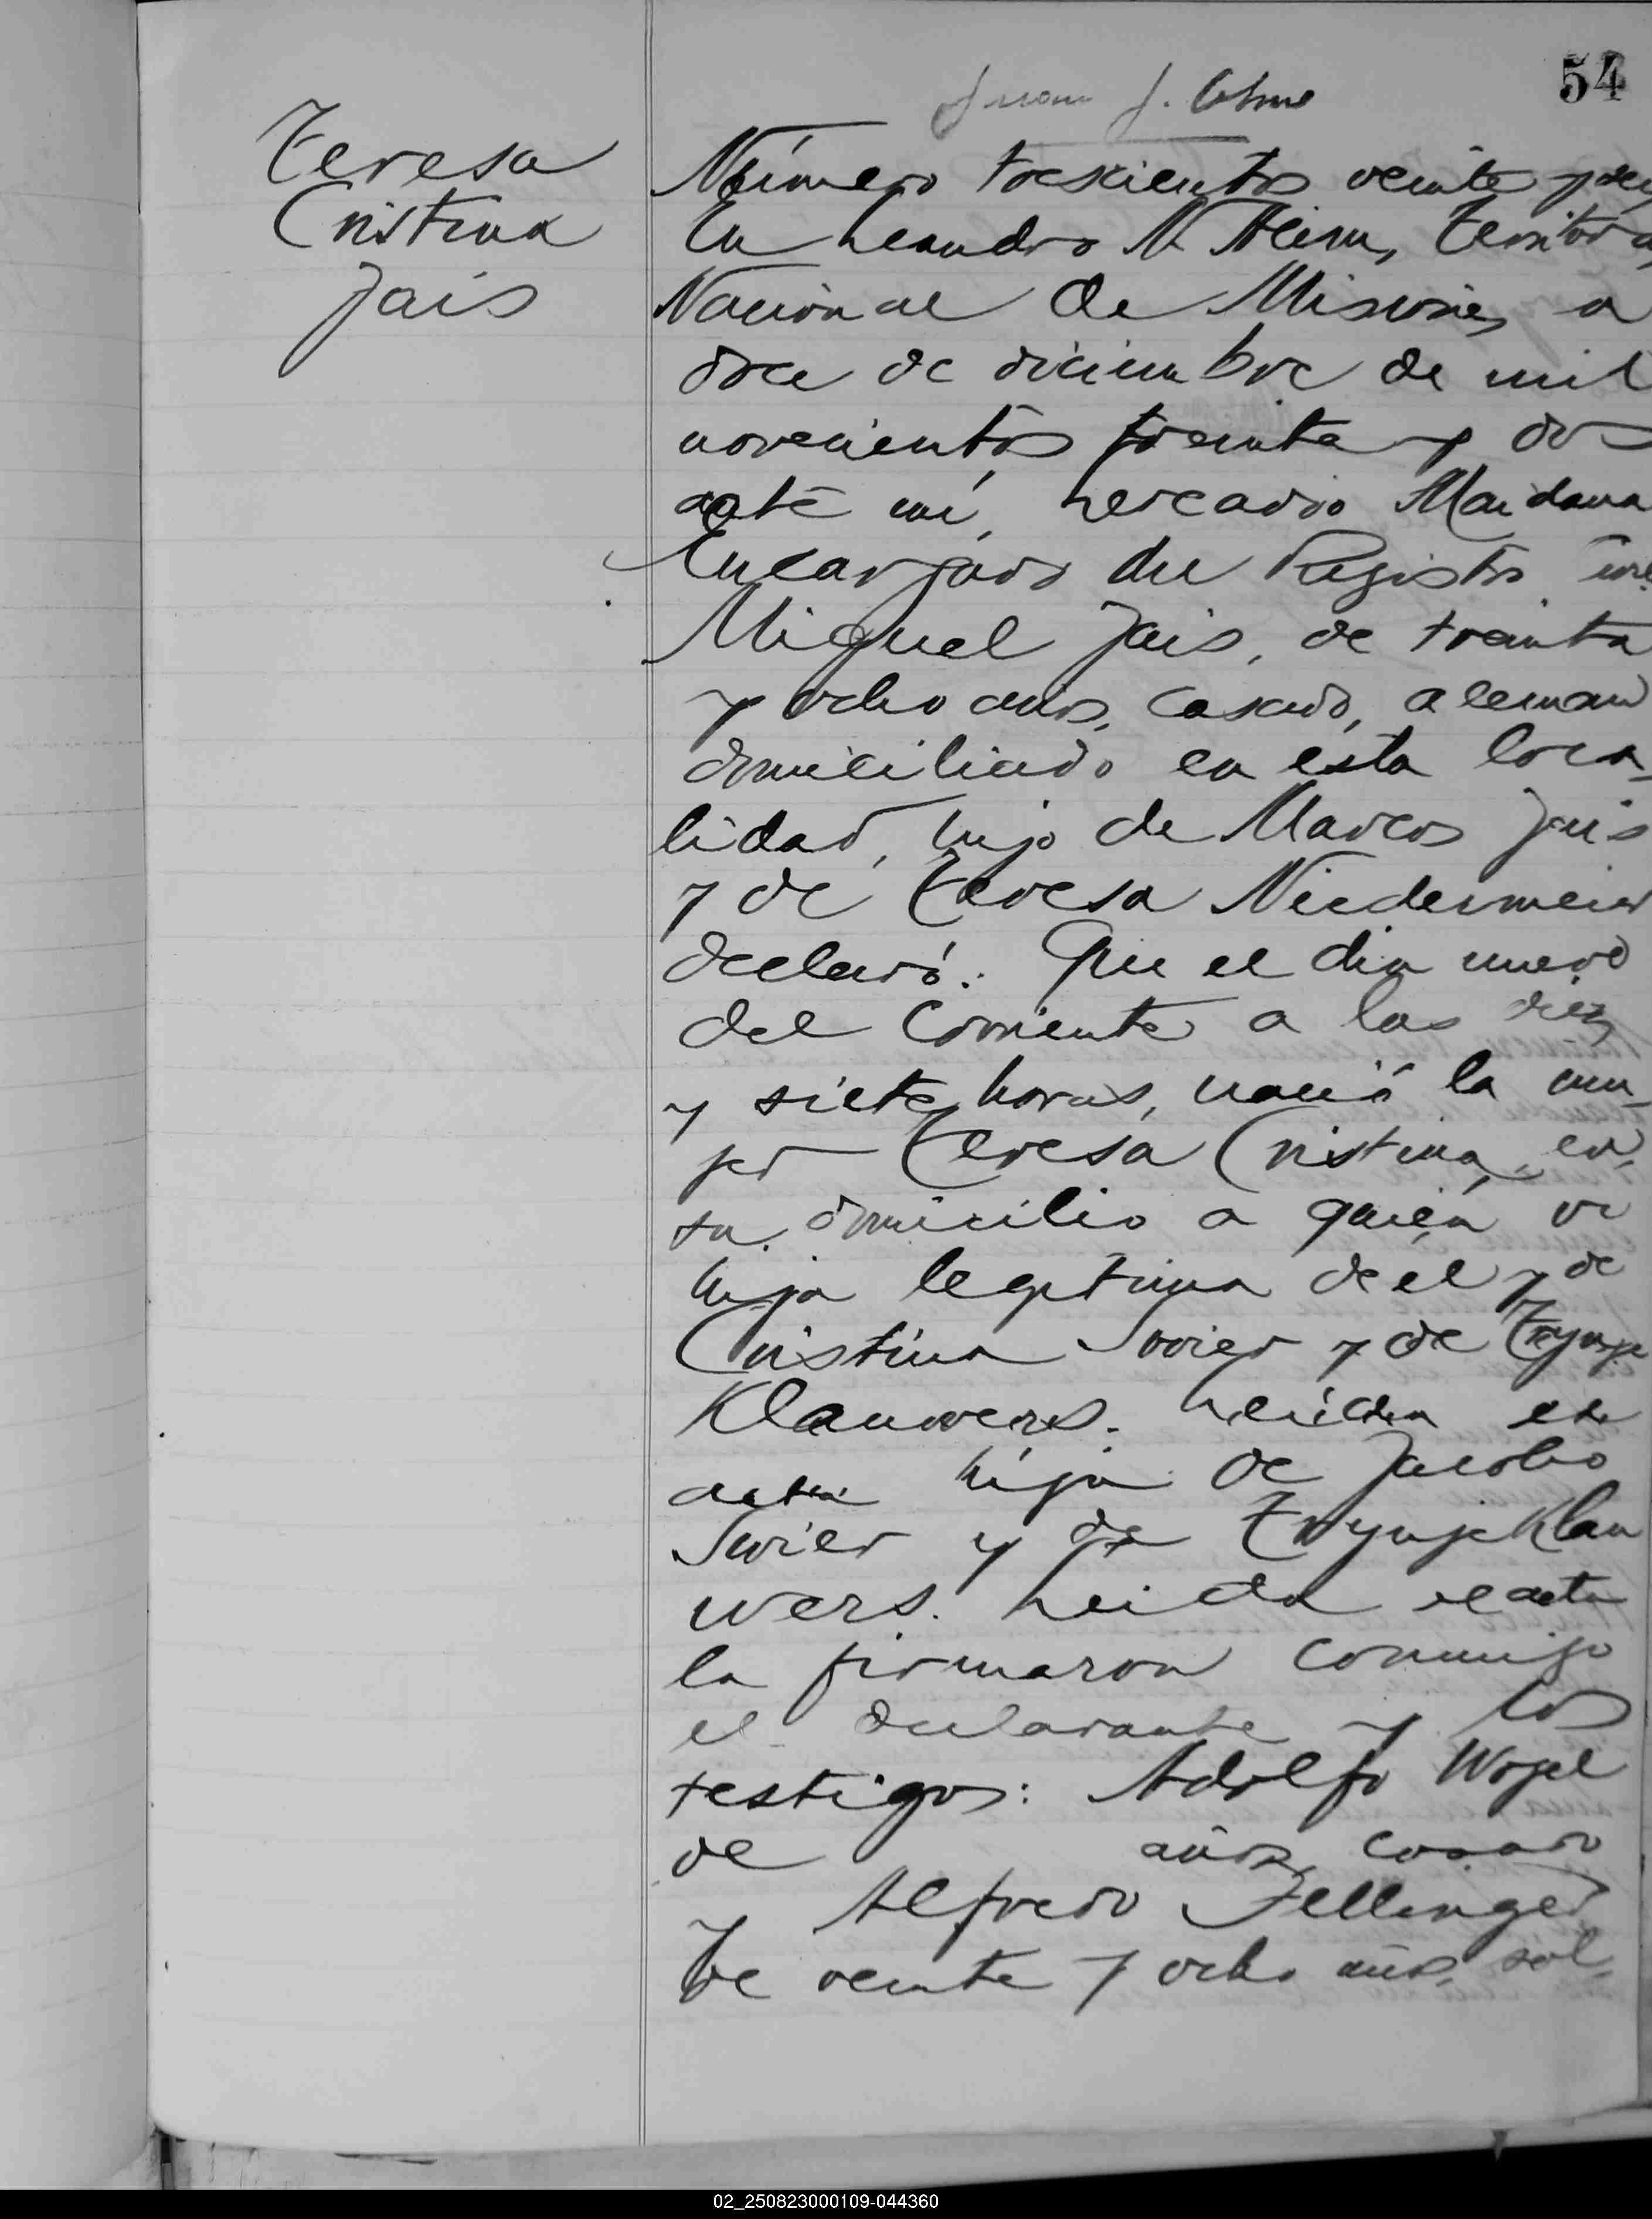 54
Juan J.
Teresa
Cristina
Jais
Número trescientos veinte y seis
En Leandro N Alem, Territorio
Nacional de Misiones, a
doce de diciembre de mil
novecientos treinta y dos
ante mí, Leocadio Maidana
Encargado del Registro
Miguel Jais, de treinta
y ocho años, casado, aleman
domiciliado en esta loca-
lidad, hijo de Marcos Jais
y de Teresa Niedermeier
declaró: Que el dia nueve
del corriente a las diez
y siete horas, nació la mu-
jer Teresa Cristina, en
su domicilio a quien vi
hija legitima de el y de
Cristina Swier y de Trynje
Klauwers. Leída el
acta hija de Jacobo
Swier y de Trynje Klau
wers. Leida el acta
la firmaron conmigo
el declarante y los
testigos: Adolfo Wogel
de años, casado
y Alfredo Fellinger
de veinte y ocho años, sol-
02_250823000109-044360